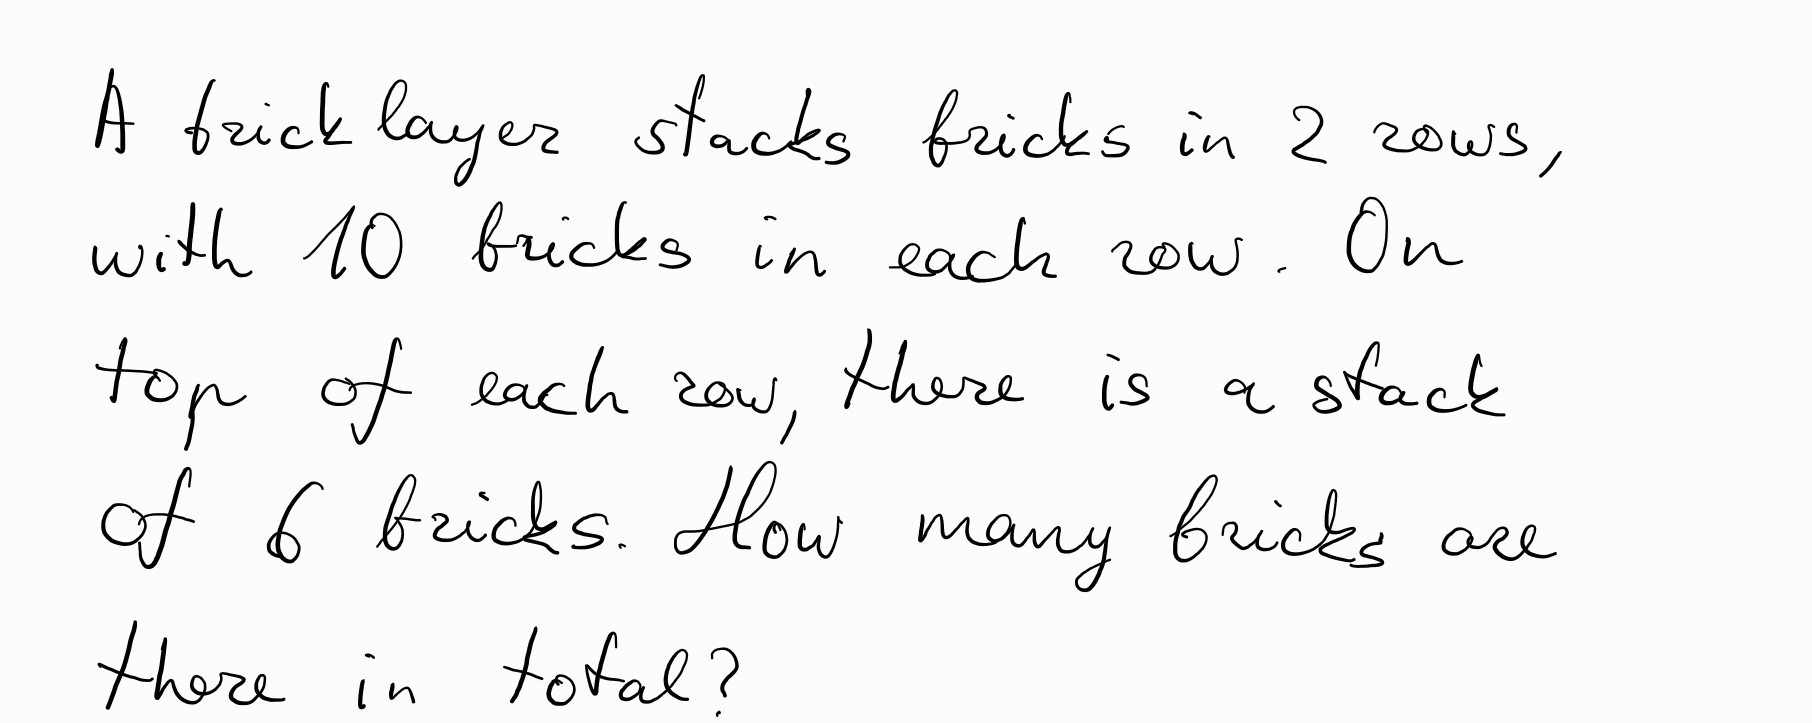 A bricklayer stacks bricks in 2 rows,
with 10 bricks in each row. On
top of each row, there is a stack
of 6 bricks. How many bricks are
there in total?